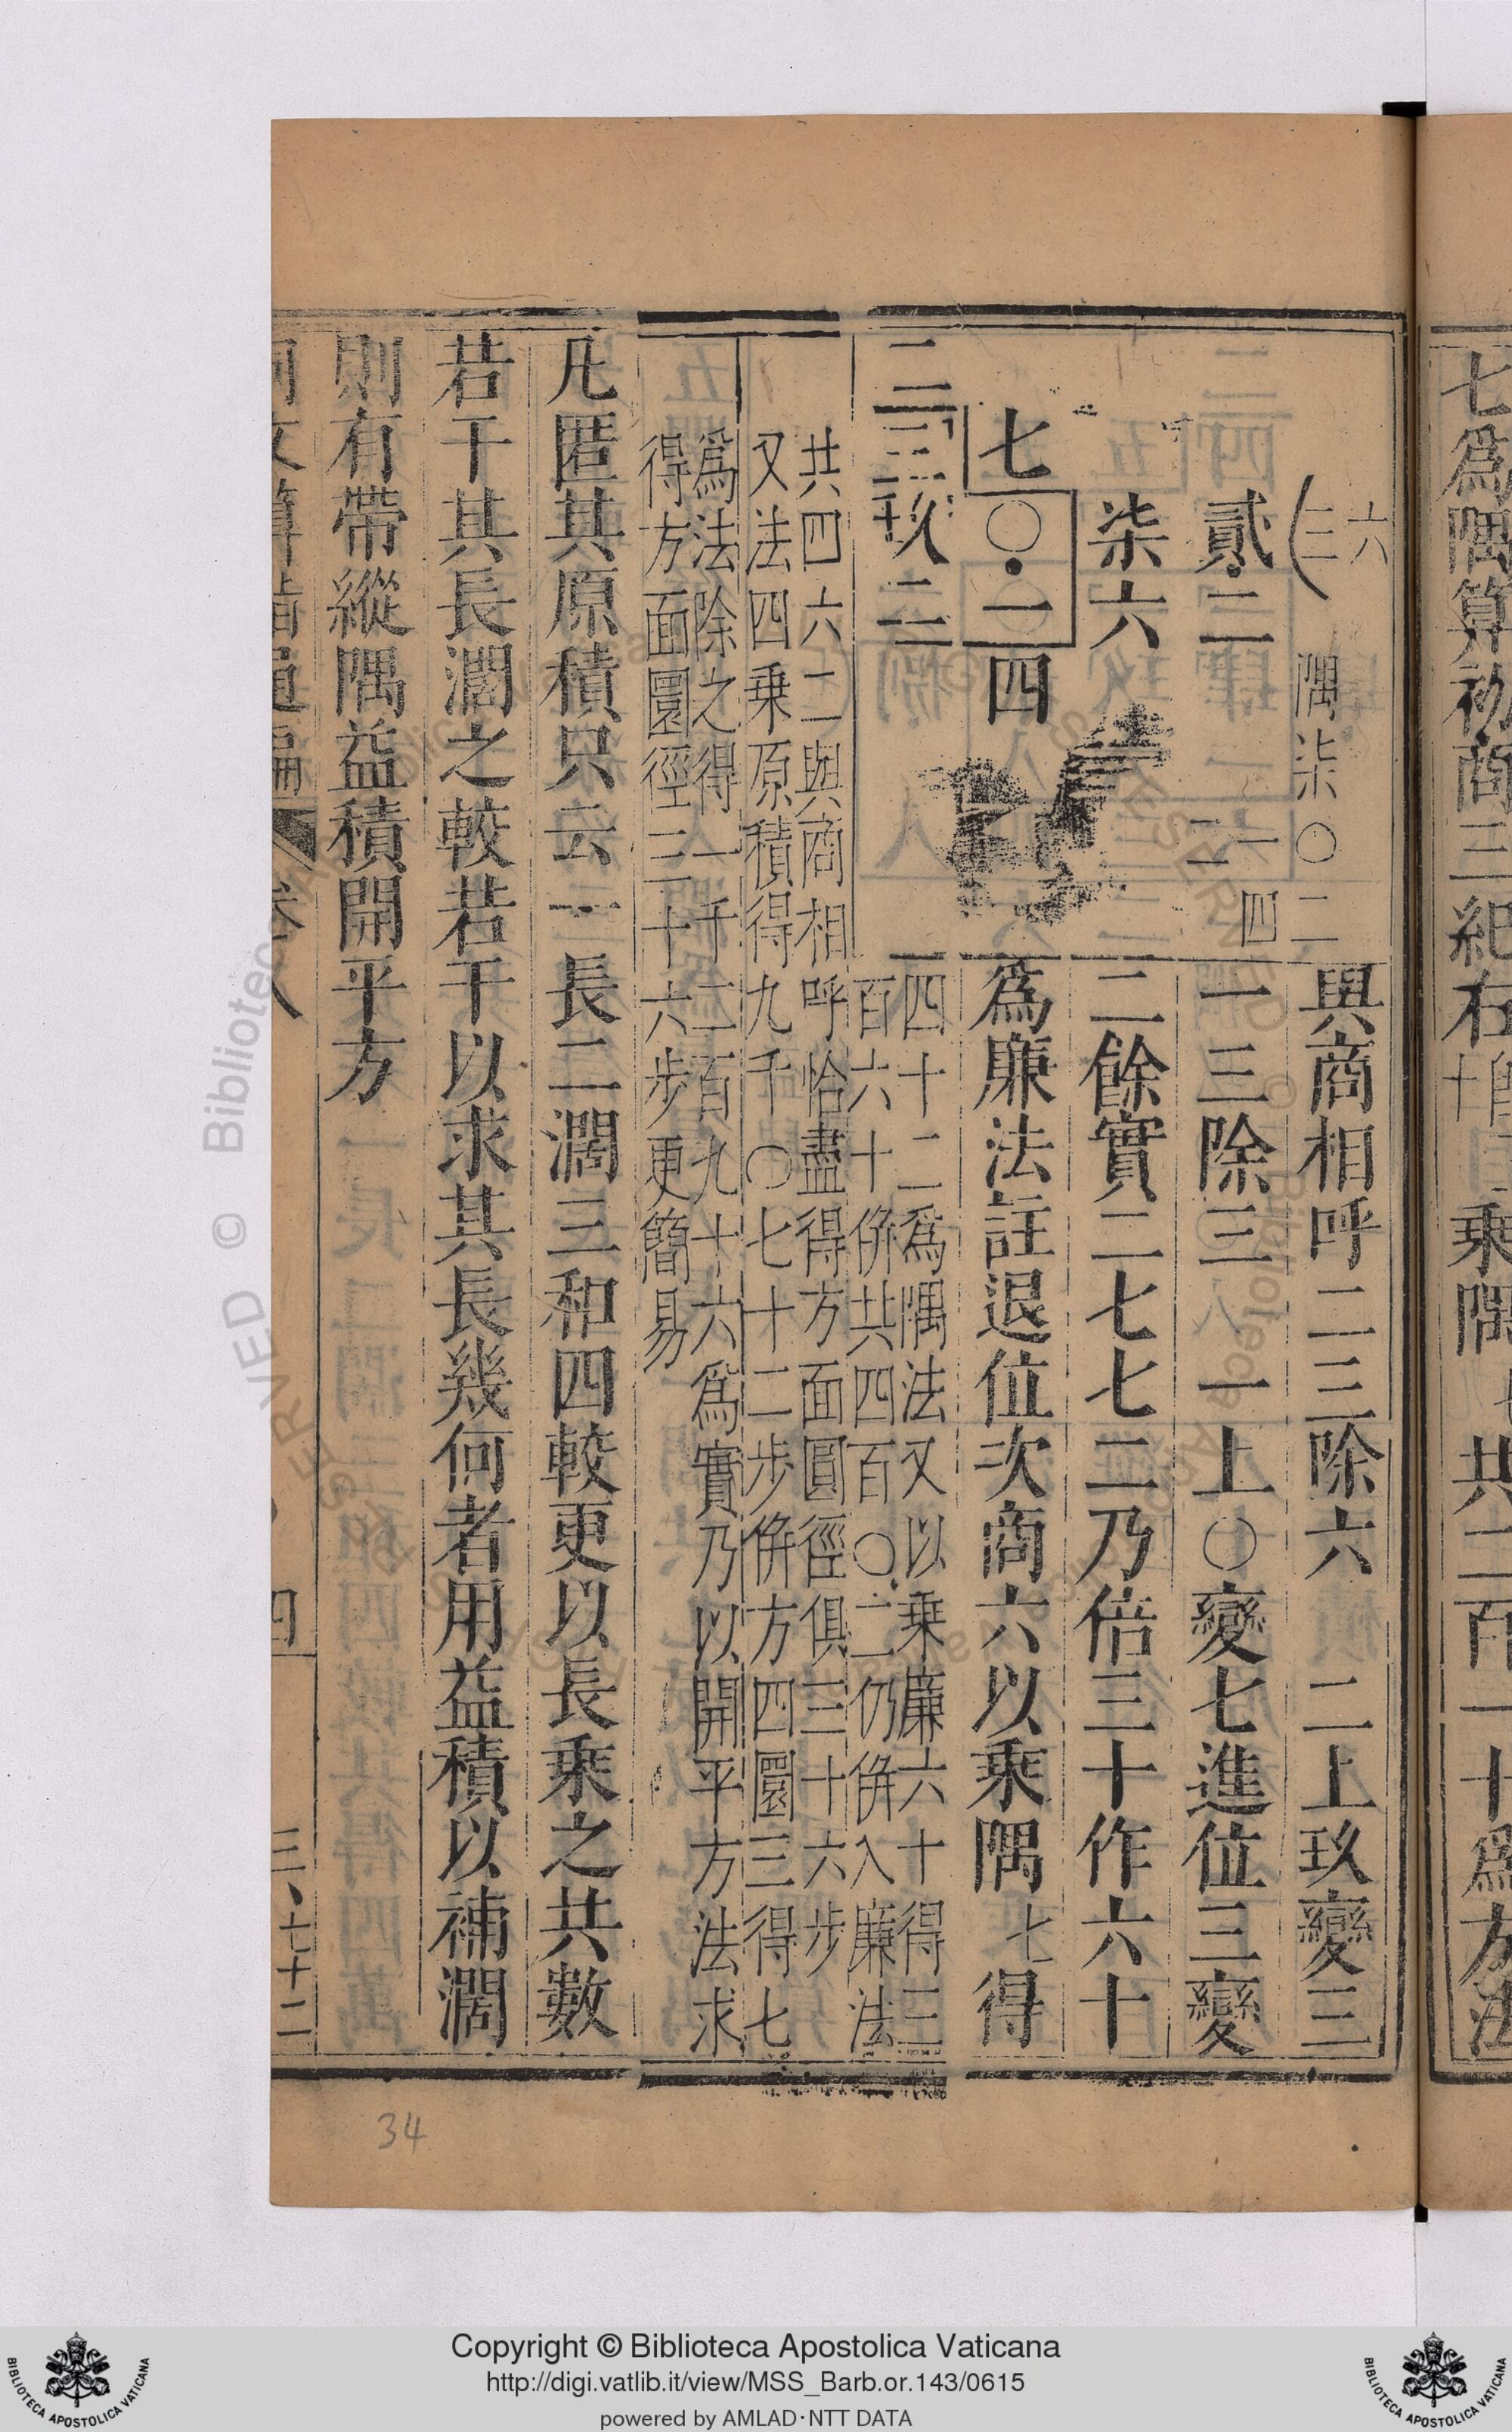 七爲隅算初商三紀在
乘隅 七 共二百一十爲方法
六
三
隅柒〇二
與商相呼二三除六 二上玖變三
貳二 一二四
一三除三 一上〇變七進位三變
柒六
二餘實二七七二乃倍三十作六十
七〇一四
爲廉法註退位次商六以乘隅七得
二三玖二
四十二爲隅法又以乘廉六十得三
百六十併共四百〇二仍併入廉法
共四六二與商相呼恰盡得方面圓徑俱三十六步
又法四乘原積得九千〇七十二步併方四圜三得七
爲法除之得一千二百九十六爲實乃以開平方法求
得方面圜徑三十六步更簡易
凡匿其原積只云一長二濶三和四較更以長乘之共數
若干其長濶之較若干以求其長幾何者用益積以補濶
則有帶縱隅益積開平方
同文算指通編 卷八 四 三、七十二
34
Copyright © Biblioteca Apostolica Vaticana
http://digi.vatlib.it/view/MSS_Barb.or.143/0615
powered by AMLAD·NTT DATA
BIBLIOTECA APOSTOLICA VATICANA
BIBLIOTECA APOSTOLICA VATICANA